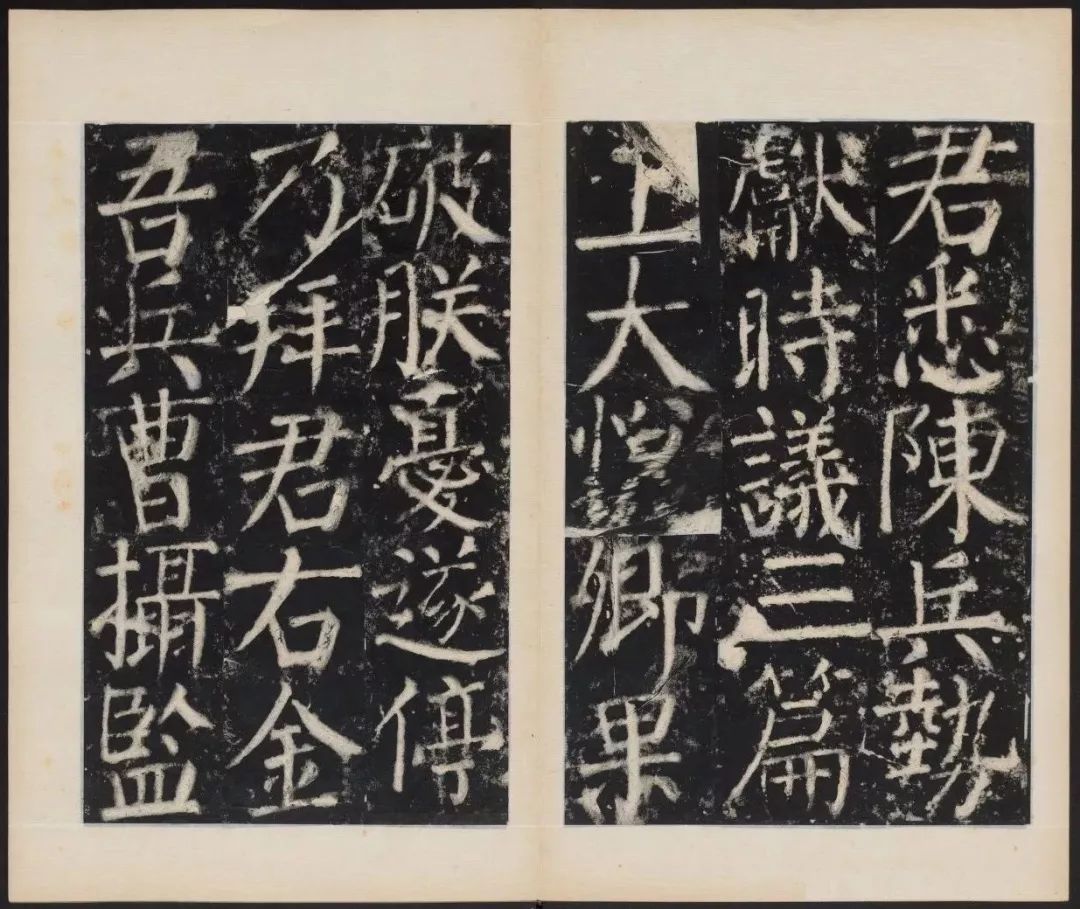 君悉陳兵勢
獻時議三篇
上大悅卿果
破朕憂遂停
乃拜君右金
吾兵曹攝監